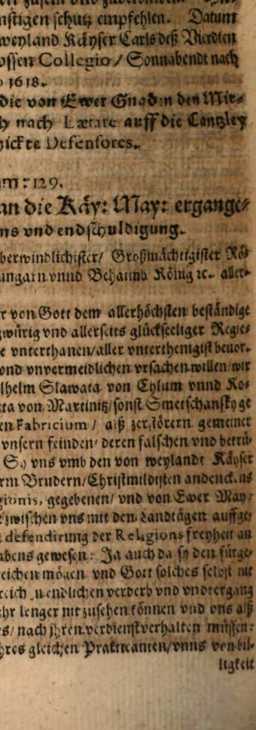 nstigen schutz empfehlen. Datum
weyland Käyser Carls deß Vierdten
ossen Collegio / Sonnabendt nach
1618.
die von Ewer Gnaden den Mit-
nach Lætare auff die Cantzley
hickte Defensores.
um: 129.
an die Käy: May: ergange-
ns vnd endschuldigung.
berwindlichister / Großmächtigister Rö-
ungarn vnnd Behaimb König ꝛc. aller-
r von Gott dem allerhöchsten beständige
würig vnd allerseits glückseeliger Regie-
e vnterthanen / aller vnterthenigist beuor.
vnd vnvermeidlichen vrsachen willen wir
lhelm Slawata von Chlum vnnd Ko-
ta von Martinitz / sonst Smetschansky ge
en Fabricium / alß zerstörern gemeiner
vnsern feinden / deren falschen vnd betrü-
So vns vmb den von weylandt Käyser
rm Brudern / Christmildisten andenckens
gionis, gegebenen / vnd von Ewer May:
zwischen vns mit den Landtägen auffge-
defendirung der Religions freyheit an
abens gewesen: Ja auch da sy den fürge-
eichen mögen vnd Gott solches selbst nit
endlichen verderb vnd vndtergang
hr lenger nit zusehen können vnd vns alß
s / nach ihren verdienst verhalten müssen:
hres gleichen Practicanten / vnns von bil-
ligkeit